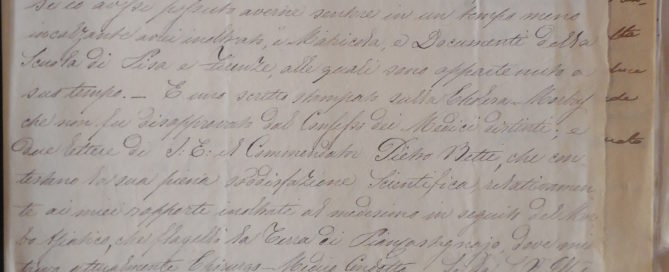 se io avessi potuto averne sentore in un tempo meno
incalzante avrei inoltrato, i Matricola, e Documenti della
Scuola di Pisa e Firenze, alle quali sono appartenuto a
suo tempo. — E uno scritto stampato sulla Cholera-Morbus
che non fu disapprovato dal Consesso dei Medici distinti; e
due lettere di S: E: il Commendator Pietro Betti, che con
testano la sua piena soddisfazione Scientifica, relativamen
te ai miei rapporti inoltrati al medesimo in seguito del Mor
bo Asiatico, che flagellò la Terra di Piancastagnajo, dove mi
trovo attualmente Chirurgo-Medico Condotto